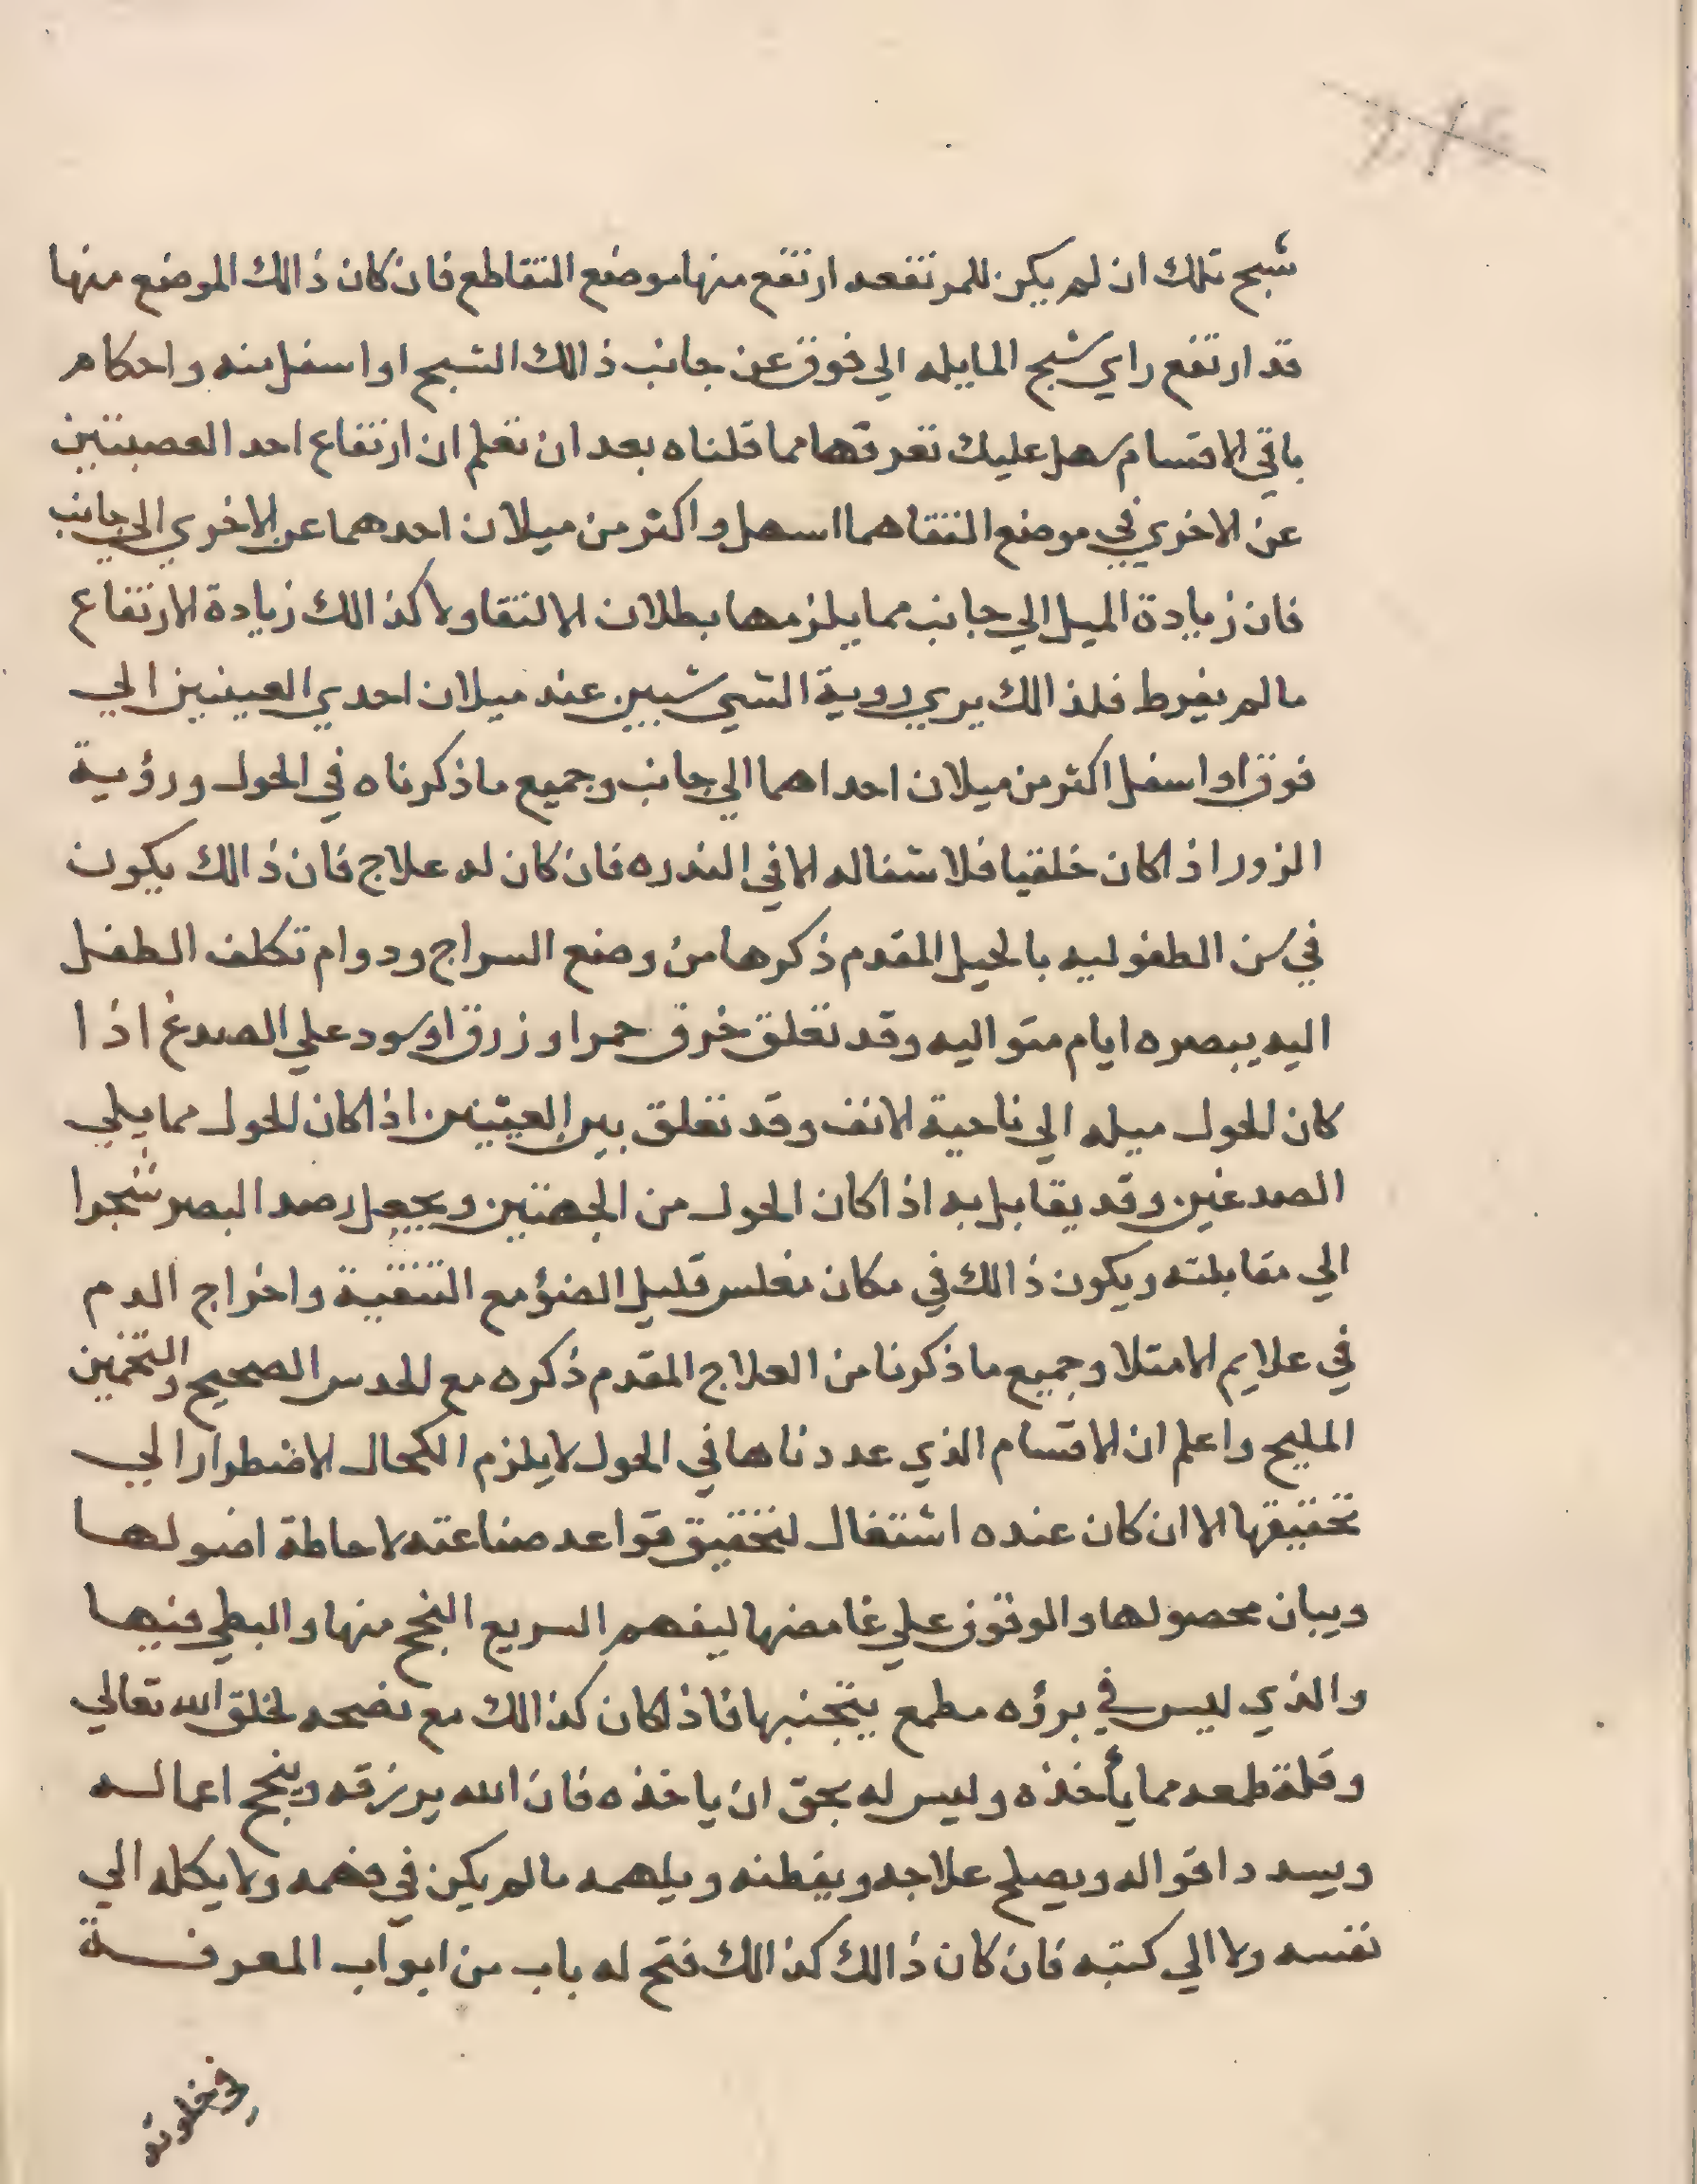 شبح تلك ان لم يكن للمرتفعه ارتفع منها موضع التقاطع فان كان ذالك الموضع منها
قد ارتفع راي شبح المايله الى فوق عن جانب ذالك الشبح او اسفل منه واحكام
باقي الاقسام سهل عليك تعرفها مما قلناه بعد ان تعلم ان ارتفاع احد العصبتين
عن الاخري في موضع التقاهما اسهل واكثر من ميلان احدهما عن الاخري الي جانب
فان زيادة الميل الي جانب مما يلزمها بطلان الالتقا ولا كذالك زيادة الارتفاع
مالم يفرط فلذالك يري روية الشي شيين عند ميلان احدي العينين الي
فوق او اسفل اكثر من ميلان احداهما الي جانب وجميع ماذكرناه في الحول ورؤية
الزور اذا كان خلقيا فلا شفاله الا في الندره فان كان له علاج فان ذالك يكون
في سن الطفوليه بالحيل المقدم ذكرها من وضع السراج ودوام تكلف الطفل
اليه يبصره ايام متواليه وقد تعلق خرق حمر او زرق او سود علي الصدغ اذا
كان الحول ميله الي ناحية الانف وقد تعلق بين العينين اذا كان الحول مما يلي
الصدغين وقد يقابل به اذا كان الحول من الجهتين ويجعل رصد البصر
الي مقابلته ويكون ذالك في مكان مغلس قليل الضؤ مع التنقية واخراج الدم
في علايم الامتلا وجميع ماذكرنا من العلاج المقدم ذكره مع الحدس الصحيح والتخمين
المليح واعلم ان الاقسام الذي عددناها في الحول لا يلزم الكحال الاضطرار الي
تحقيقها الا ان كان عنده اشتغال لتحقيق قواعد صناعته لاحاطة اصولها
وبيان محصولها والوقوف علي غامضها ليفهم السريع النجح منها والبطي فيها
والذي ليس في برؤه مطمع يتجنبها فاذا كان كذالك مع نصحه لخلق الله تعالي
وقلة طمعه مما يأخذه وليس له بحق ان ياخذه فان الله يرزقه وينجح اعماله
ويسدد اقواله ويصلح علاجه ويفطنه ويلهمه مالم يكن في فهمه ولا يكله الي
نفسه ولا الي كتبه فان كان ذالك كذالك فتح له باب من ابواب المعرفة